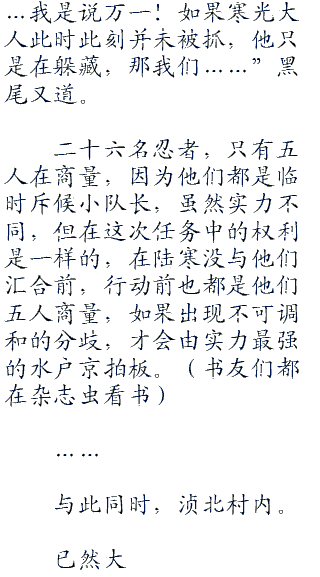 …我是说万一！如果寒光大
人此时此刻并未被抓，他只
是在躲藏，那我们……”黑
尾又道。
二十六名忍者，只有五
人在商量，因为他们都是临
时斥候小队长，虽然实力不
同，但在这次任务中的权利
是一样的，在陆寒没与他们
汇合前，行动前也都是他们
五人商量，如果出现不可调
和的分歧，才会由实力最强
的水户京拍板。（书友们都
在杂志虫看书）
……
与此同时，浈北村内。
已然大